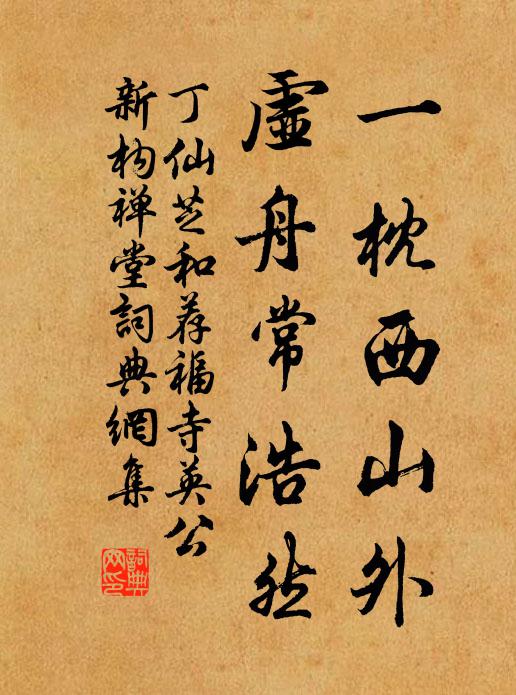 一枕西山外
虛舟常浩然
丁仙芝和荐福寺英公
新构禅堂詞典網集
詞典網印